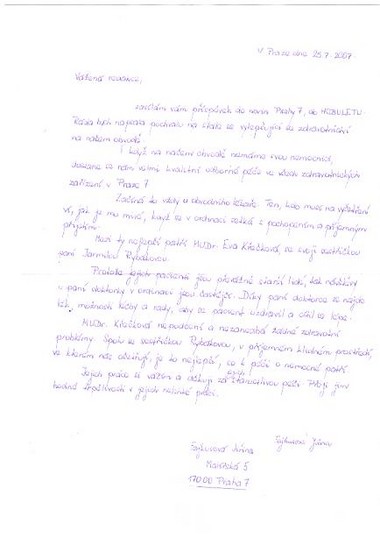 V Praze dne 25.7.2007.
Vážená redakce,
zasílám vám příspěvek do novin Prahy 7, do HOBULETU.
Ráda bych napsala pochvalu na stále se vylepšující se zdravotnictví
na našem obvodě.
I když na našem obvodě nemáme svou nemocnici,
dostane se nám velmi kvalitní odborné péče ve všech zdravotnických
zařízení v Praze 7
Začíná to vždy u obvodního lékaře. Ten, kdo musí na vyšetření
ví, jak je mu milé, když se v ordinaci setká s pochopením a příjemným
přijetím.
Mezi ty nejlepší patří MUDr. Eva Kňáčková se svojí sestřičkou
paní Jarmilou Rybákovou.
Protože jejich pacienti jsou převážně starší lidé, tak návštěvy
u paní doktorky v ordinaci jsou častější. Díky paní doktorce se najdo
lék, možnosti léčby a rady, aby se pacient uzdravil a cítil se lépe.
MUDr. Kňáčková nepodcení a nezanedbá žádné zdravotní
problémy. Spolu se sestřičkou Rybákovou, v příjemném klidném prostředí,
ve kterém nás ošetřují, je to nejlepší, co k péči o nemocné patří.
Jejich práce si vážím a děkuji za starostlivou péči. Přeji jim
hodně trpělivosti v jejich nelehké práci.
Jiřina
Mavrská 5
17000 Praha 7